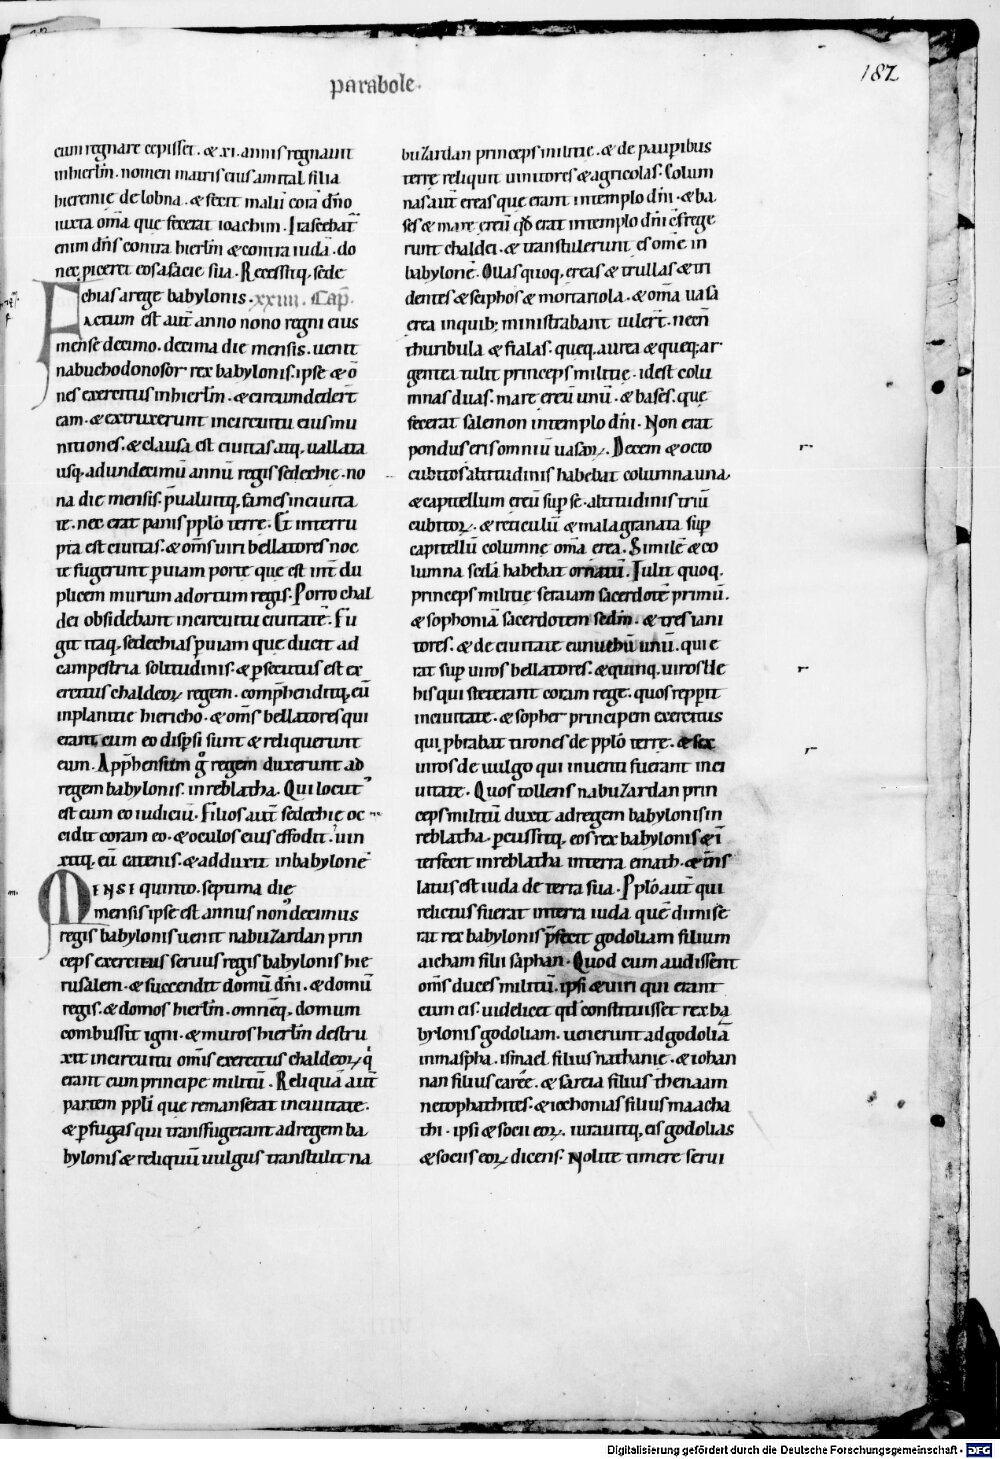 parabole.
182
cum regnare cepisset. & xi. annis regnauit
inhierłm. nomen matris eius amital filia
hieremie de lobna. & fecit malū corā dn̄o
iuxta om̄a que fecerat ioachim. Irascebat᷑
enim dn̄s contra hierłm & contra iudā. do
nec ꝓiceret eos a facie sua. Recessitq, sede
chias a rege babylonis. xxiiii. Cap̄.
Factum est aut̄ anno nono regni eius
mense decimo. decima die mensis. uenit
nabuchodonosor rex babylonis. ipse & ō
nes exercitus inhierłm. & circumdedert̄
eam. & extruxerunt incircuitu eius mu
nitiones. & clausa est ciuitas atq, uallata
usq, ad undecimū annū regis sedechie. no
na die mensis. p̄ualuitq, fames inciuita
te. nec erat panis ppłō terre. Et interru
pta est ciuitas. & om̄s uiri bellatores noc
te fugerunt ꝑ uiam porte que est int̄ du
plicem murum ad ortum regis. Porro chal
dei obsidebant incircuitu ciuitatē. Fu
git itaq, sedechias ꝑ uiam que ducit ad
campestria solitudinis. & ꝑsecutus est ex
ercitus chaldeoꝝ regem. comp̄henditq, eū
inplanitie hiericho. & om̄s bellatores qui
erant cum eo disꝑsi sunt & reliquerunt
eum. App̄hensum gͦ regem duxerunt ad
regem babylonis. inreblatha. Qui locut᾽
est cum eo iudiciū. Filios aut̄ sedechie oc
cidit coram eo. & oculos eius effodit. uin
xitq, eū catenis. & adduxit inbabylonē
Mensi quinto. septima die
mensis ipse est annus nonᵘdecimus
regis babylonis uenit nabuzardan prin
ceps exercitus seruus regis babylonis hie
rusalem. & succendit domū dn̄i. & domū
regis. & domos hierłm. omnēq, domum
combussit igni. & muros hierłm destru
xit incircuitu omīs exercitus chaldeoꝝ qͥ
erant cum principe militū. Reliquā aut̄
partem ppłi que remanserat inciuitate.
& ꝑfugas qui transfugerant ad regem ba
bylonis & reliquū uulgus transtulit na
buzardan princeps militie. & de pauꝑibus
terre reliquit uinitores & agricolas. Colum
nas aut̄ ereas que erant intemplo dn̄i. & ba
ses & mare ereū qd̄ erat intemplo dn̄i c̄frege
runt chaldei. & transtulerunt es om̄e in
babylonē. Ollas quoq, ereas & trullas & tri
dentes & sciphos & mortariola. & om̄a uasa
erea inquib; ministrabant tulert̄. necn̄
thuribula & fialas. queq, aurea & queq; ar
gentea tulit princeps militie. idest colu
mnas duas. mare ereū unū. & bases. que
fecerat salemon intemplo dn̄i. Non erat
pondus eris omniū uasoꝝ. Decem & octo
cubitos altitudinis habebat columna una.
& capitellum ereū suꝑ se. altitudinis triū
cubitoꝝ. & reticulū & malagranata suꝑ
capitellū columne om̄a erea. Similē & co
lumna scd̄a habebat ornatū. Tulit quoq,
princeps militie seraiam sacerdotē primū.
& sophoniā sacerdotem scd̄m. & tres iani
tores. & de ciuitate eunuchū unū. qui e
rat suꝑ uiros bellatores. & quinq, uiros de
his qui steterant coram rege. quos repperit
inciuitate. & sopher principem exercitus
qui ꝓbabat tirones de ppłō terre. & sex
uiros de uulgo qui inuenti fuerant inci
uitate. Quos tollens nabuzardan prin
ceps militū duxit ad regem babylonis in
reblatha. ꝑcussitq, eos rex babylonis & ī
terfecit inreblatha interra emath. & t̄ns
latus est iuda de terra sua. Ppłō aut̄ qui
relictus fuerat interra iuda quē dimise
rat rex babylonis p̄fecit godoliam filium
aicham filii saphan. Quod cum audissent
om̄s duces militū. ipsi & uiri qui erant
cum eis. uidelicet qd̄ constituisset rex ba
bylonis godoliam. uenerunt ad godoliā
inmaspha. ismael filius nathanie. & iohan
nan filius caree. & sareia filius thenaam
netophathites. & iechonias filius maacha
thi. ipsi & socii eoꝝ. iurauitq, eis godolias
& sociis eoꝝ dicens. Nolite timere serui
Digitalisierung gefördert durch die Deutsche Forschungsgemeinschaft - DFG